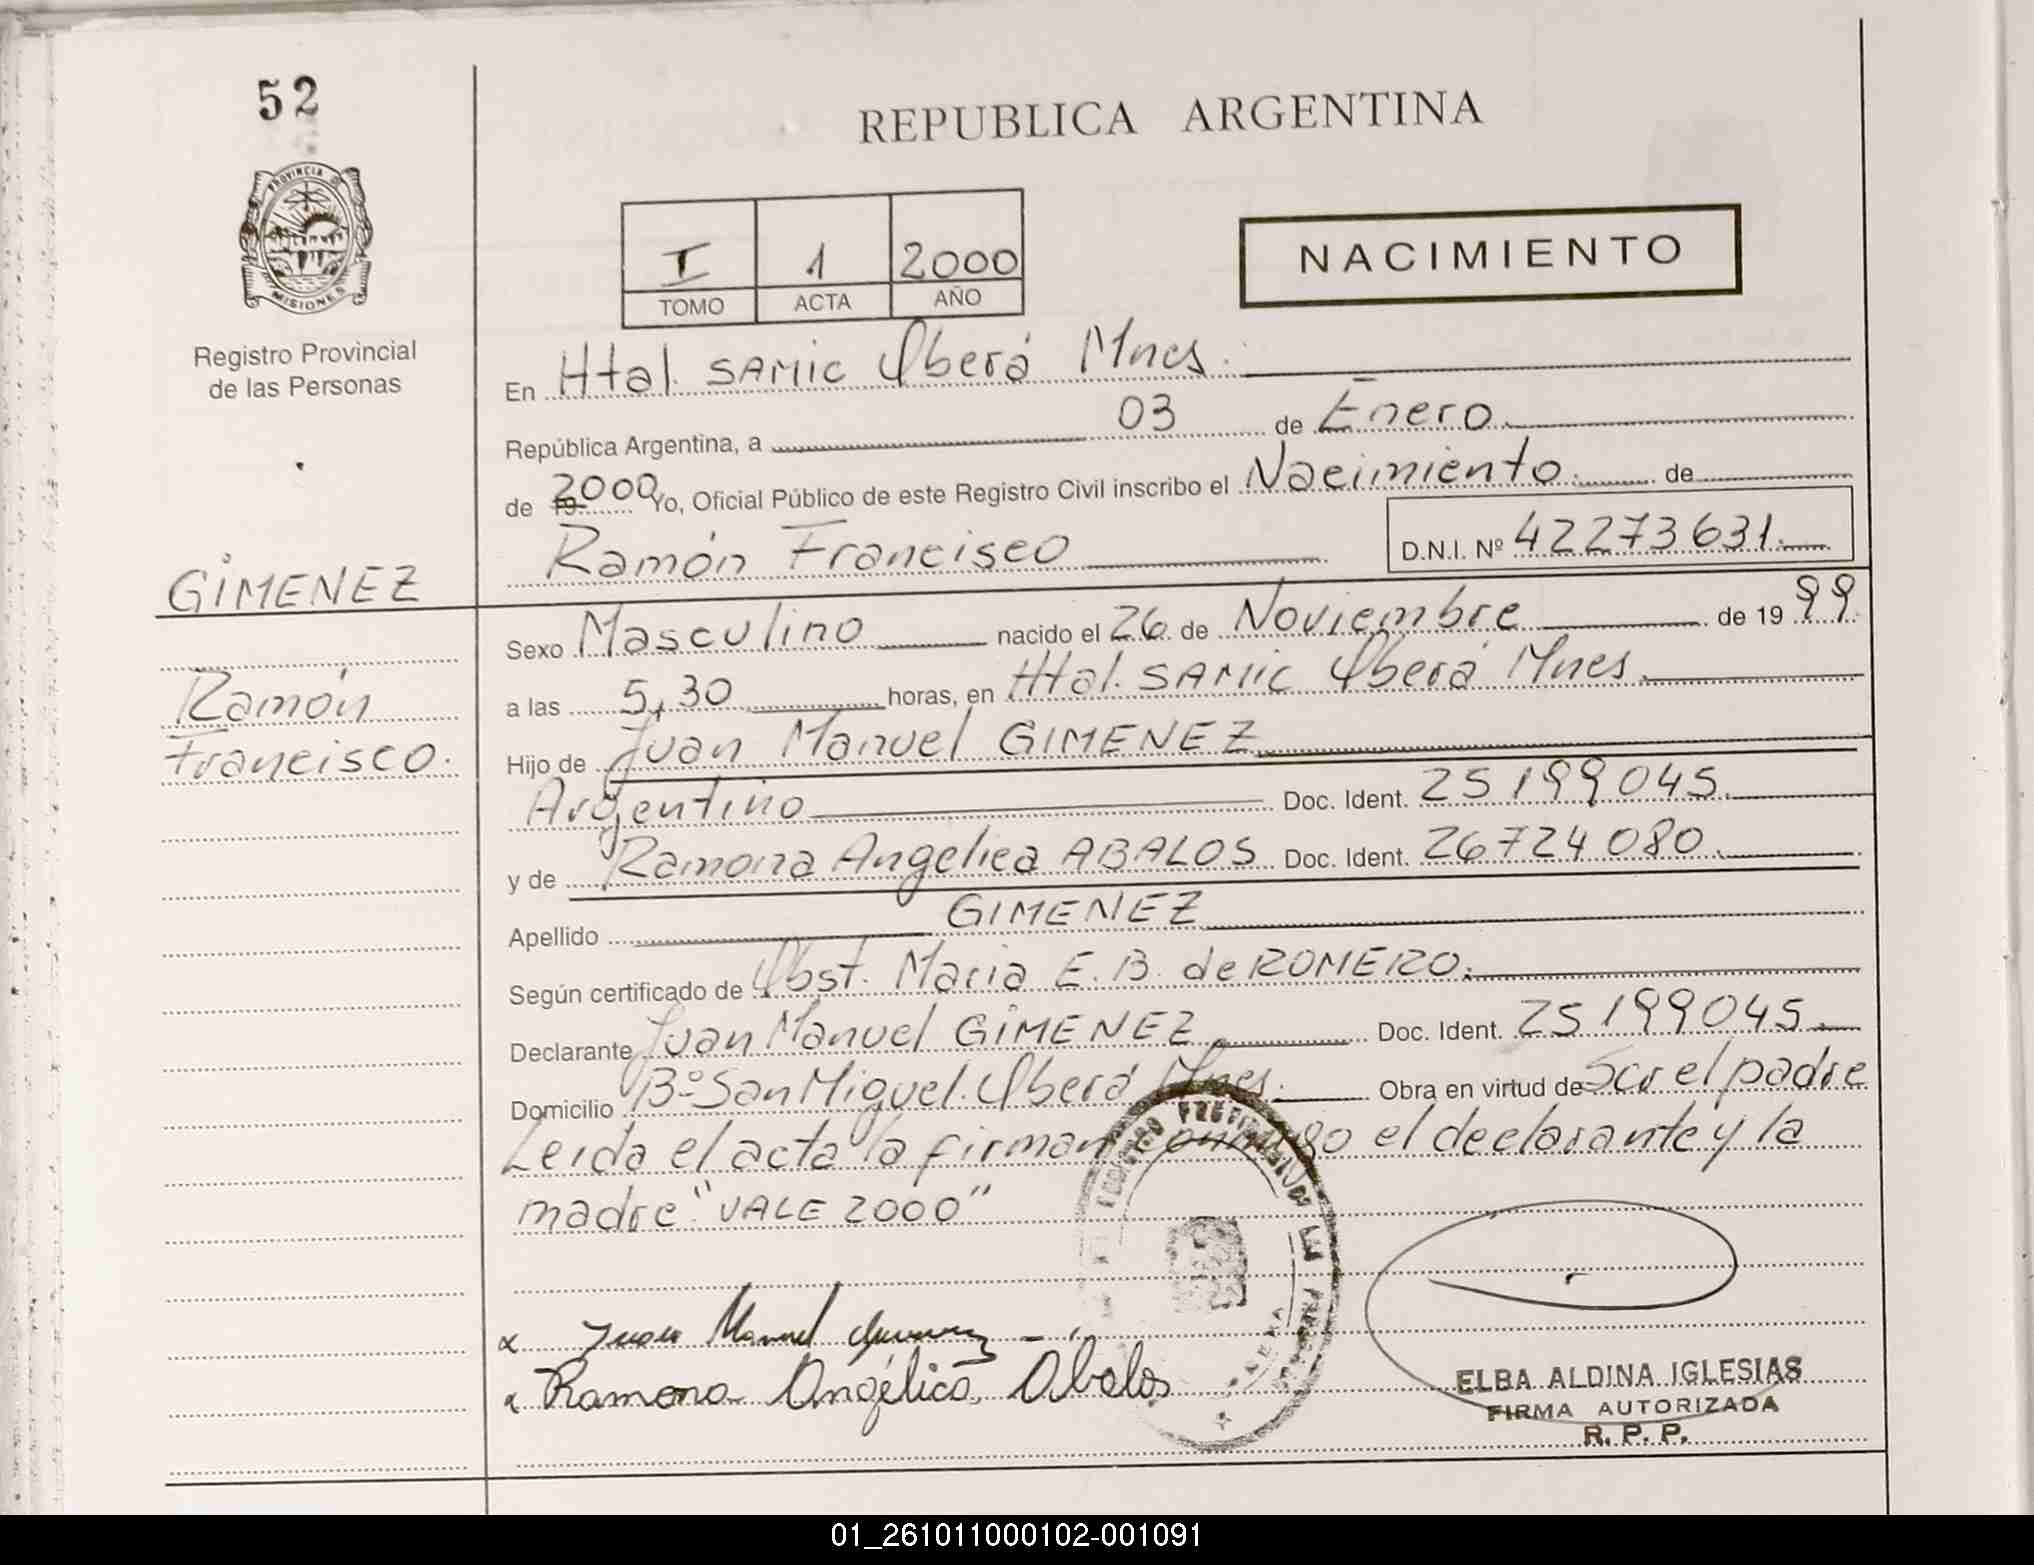 52
REPUBLICA ARGENTINA
PROVINCIA DE
MISIONES
Registro Provincial
de las Personas
I 1 2000
TOMO ACTA AÑO
NACIMIENTO
En Htal. SAMIC Oberá Mnes.
República Argentina, a 03 de Enero
de 19 2000 Yo, Oficial Público de este Registro Civil inscribo el Nacimiento de
Ramón Francisco D.N.I. Nº 42273631.
GIMENEZ
Ramón
Francisco.
Sexo Masculino nacido el 26 de Noviembre de 19 99.
a las 5,30 horas, en Htal. SAMIC Oberá Mnes.
Hijo de Juan Manuel GIMENEZ
Argentino Doc. Ident. 25199045.
y de Ramona Angelica ABALOS Doc. Ident. 26724080.
Apellido GIMENEZ
Según certificado de Obst. Maria E. B. de ROMERO.
Declarante Juan Manuel GIMENEZ Doc. Ident. 25199045.
Domicilio Bº San Miguel. Oberá Mnes. Obra en virtud de Ser el padre
Leida el acta la firman conmigo el declarante y la
madre "VALE 2000"
x Juan Manuel Gimenez
x Ramona Angélica Abalos
ELBA ALDINA IGLESIAS
FIRMA AUTORIZADA
R. P. P.
01_261011000102-001091